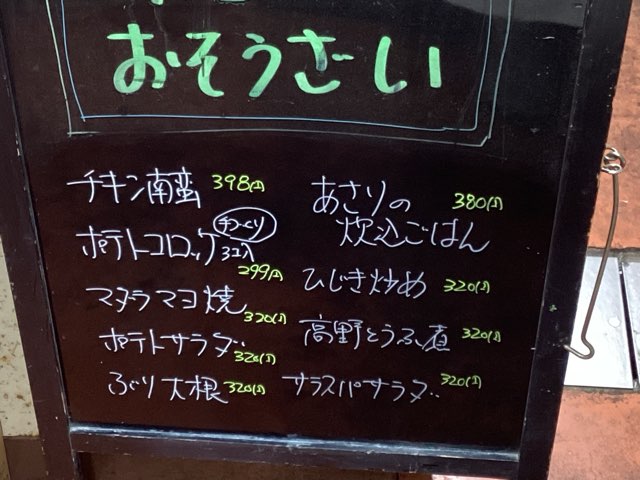 おそうざい
チキン南蛮 398円
ポテトコロッケ 手づくり 3コ入
299円
マダラマヨ焼
320円
ポテトサラダ
320円
ぶり大根 320円
あさりの 380円
炊込ごはん
ひじき炒め 320円
高野とうふ煮 320円
サラスパサラダ 320円